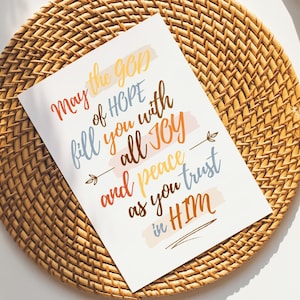 May the GOD
of HOPE
fill you with
all JOY
and peace
as you trust
in HIM